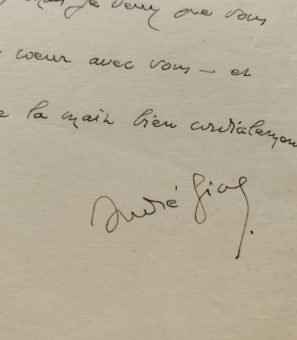 je veux que vous
coeur avec vous – et
la main bien cordialement
André Gide